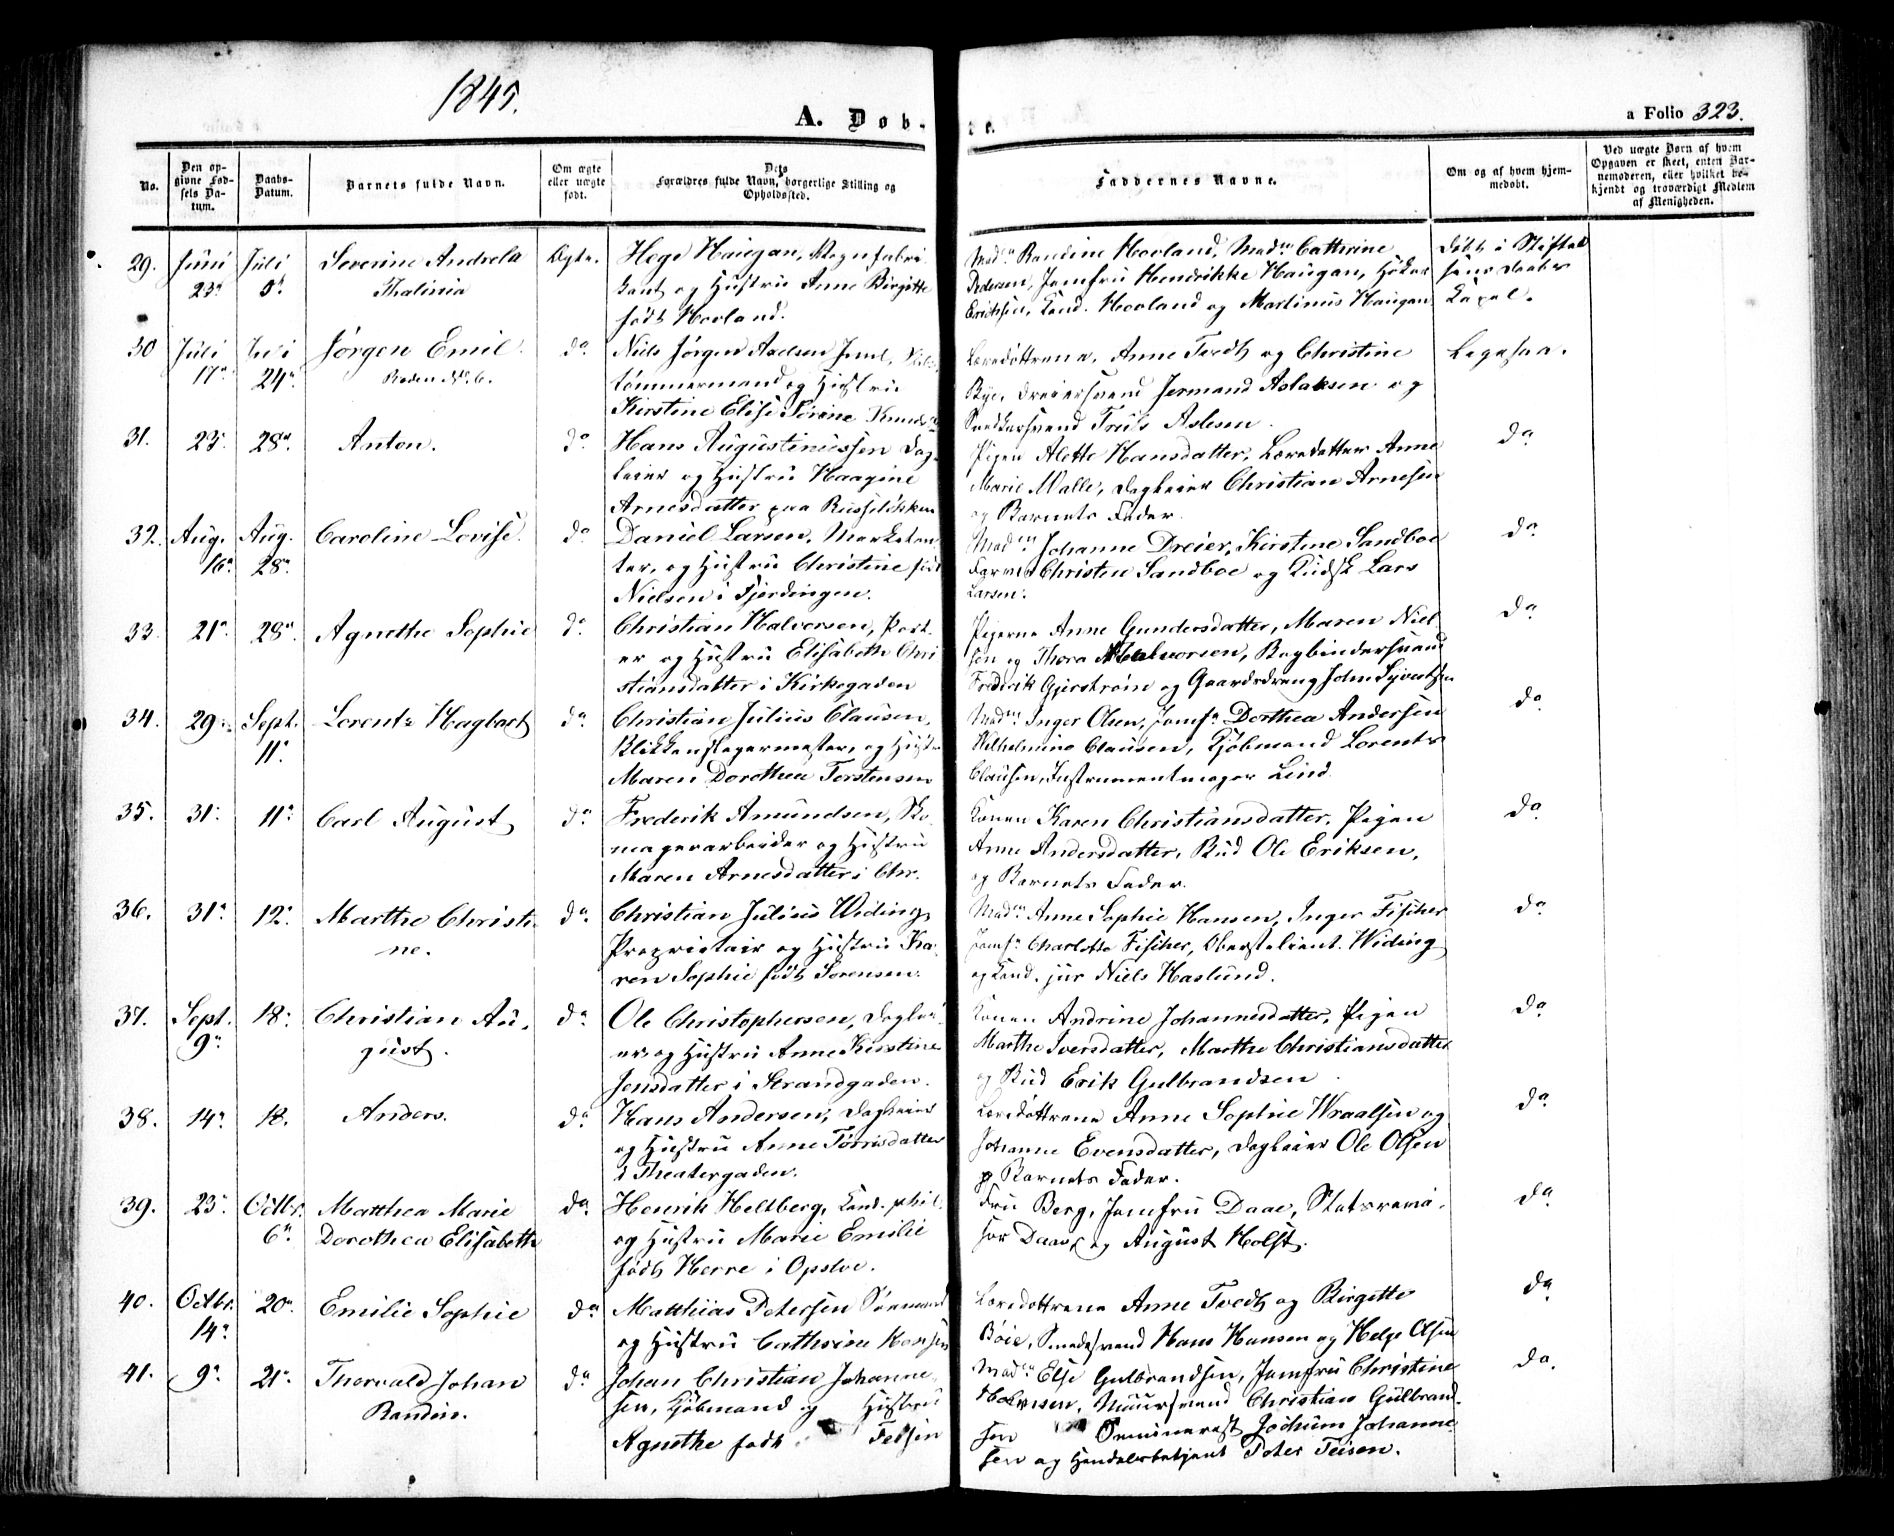 1845.
A. Døb-
te.
a Folio 323.
No.
Den op-
givne Fød-
sels Da-
tum.
Daabs-
Datum.
Barnets fulde Navn.
Om ægte
eller uægte
født.
Dets
Forældres fulde Navn, borgerlige Stilling og
Opholdssted.
Faddernes Navne.
Om og af hvem hjem-
medøbt.
Ved uægte Børn af hvem
Opgaven er skeet, enten Bar-
nemoderen, eller hvilket be-
kjendt og troværdigt Medlem
af Menigheden.
29. Juni Juli Severine Andrea Ægte.
23de
Thalinia
Haugan, Vognfabri-
kant og Hustru Anne Birgitte
født Hovland.
Madm Randine Hovland, Madm Cathrine
Pedersen, Jomfru Hendrikke Haugan, Høker
Erichsen, Cand. Hovland og Martinus Haugan
Døbt i Stiftel-
sens
Kapel.
30 Juli Juli Jørgen Emil. do
17de 24de
Roden No. 6.
Niels Jørgen Axelsen
tømmermand og Hustru
Kirstine Elise Sørine
Læredøttrene, Anne Tvedt og Christine
Bye, Dreiersvend Jermand Aslaksen og
Snedkersvend Truls Aslesen.
Ligesaa.
31. 23 28de Anton. do
Hans Augustinussen Dag-
leier og Hustru Haagine
Arnesdatter paa Russeløkken
Pigen Alette Hansdatter, Læredatter Anne
Marie Malle, Dagleier Christian Arnesen
og Barnets Fader.
do
32. Aug. Aug. Caroline Lovise. do
16de 28de
Daniel Larsen, Marketen-
ter, og Hustru Christine født
Nielsen i Fjerdingen.
Madm Johanne Dreier, Kirstine Sandboe
Farver Christen Sandboe og Kudsk Lars
Larsen.
do
33. 21de 28de Agnethe Sophie do
Christian Halvorsen, Port-
er og Hustru Elisabeth Chri-
stiansdatter i Kirkegaden
Pigerne Anne Gundersdatter, Maren Niel-
sen og Thora Halvorsen, Bogbindersvend
Frederik Gjerstrøm og Gaardsdreng John Syvertsen
do
34. 29 Sept. Lorentz Hagbart do
11te
Christian Julius Clausen,
Blikkenslagermester, og Hustru
Maren Dorothea Torstensen
Madm Inger Olsen, Jomfr Dorthea Andersen
Wilhelmine Clausen, Kjøbmand Lorents
Clausen, Instrumentmager Lind.
do
35. 31 11te Carl August do
Frederik Amundsen, Sko-
magerarbeider og Hustru
Maren Arnesdatter i Chr.
Konen Karen Christiansdatter, Pigen
Anne Andersdatter, Bud Ole Eriksen,
og Barnets Fader.
do
36. 31te 12te Marthe Christi-
ne.
do
Christian Julius Widing,
Proprietair og Hustru Ka-
ren Sophie født Sørensen.
Madm Anne Sophie Hansen, Inger Fischer
Jomfr Charlotte Fischer, Oberstelieut. Widing
og Cand. jur Niels Haslund.
do
37. Sept. 18 Christian Au-
9de
gust.
do
Ole Christophersen, Daglei-
er, og Hustru Anne Kirstine
Jensdatter i Strandgaden.
Konen Andrine Johannesdatter, Pigen
Marthe Iversdatter, Marthe Christiansdatter
og Bud Erik Gulbrandsen.
do
38. 14de 18. Anders. do
Hans Andersen, Dagleier
og Hustru Anne Torrisdatter
i Theatergaden.
Læredøttrene Anne Sophie Wraalsen og
Johanne Evensdatter, Dagleier Ole Olsen
og Barnets Fader.
do
39. 23 Octbr. Matthea Marie
6te
Dorothea Elisabeth
do
Henrik Heltberg, Cand. phil.
og Hustru Marie Emilie
født Horre i Opsloe.
Fru Berg, Jomfru Daae, Statsrevi-
sor Daae og August Holst.
do
40. Octbr. 20de Emilie Sophie do
14de
Matthias Petersen Sømand
og Hustru Cathrine Hansen
Læredøttrene Anne Tvedt og Birgitte
Bøie, Smedesvend Hans Hansen og Helge Olsen
do
41. 9de 21de Thorvald Johan
Randin.
do
Johan Christian Johanne-
sen, Kjøbmand og Hustru
Agnethe født Teisen
Madm Else Gulbrandsen, Jomfru Christine
Halvorsen, Muursvend Christian Gulbrand-
sen
Jochum Johanne-
sen og Handelsbetjent Peter Teisen.
do.